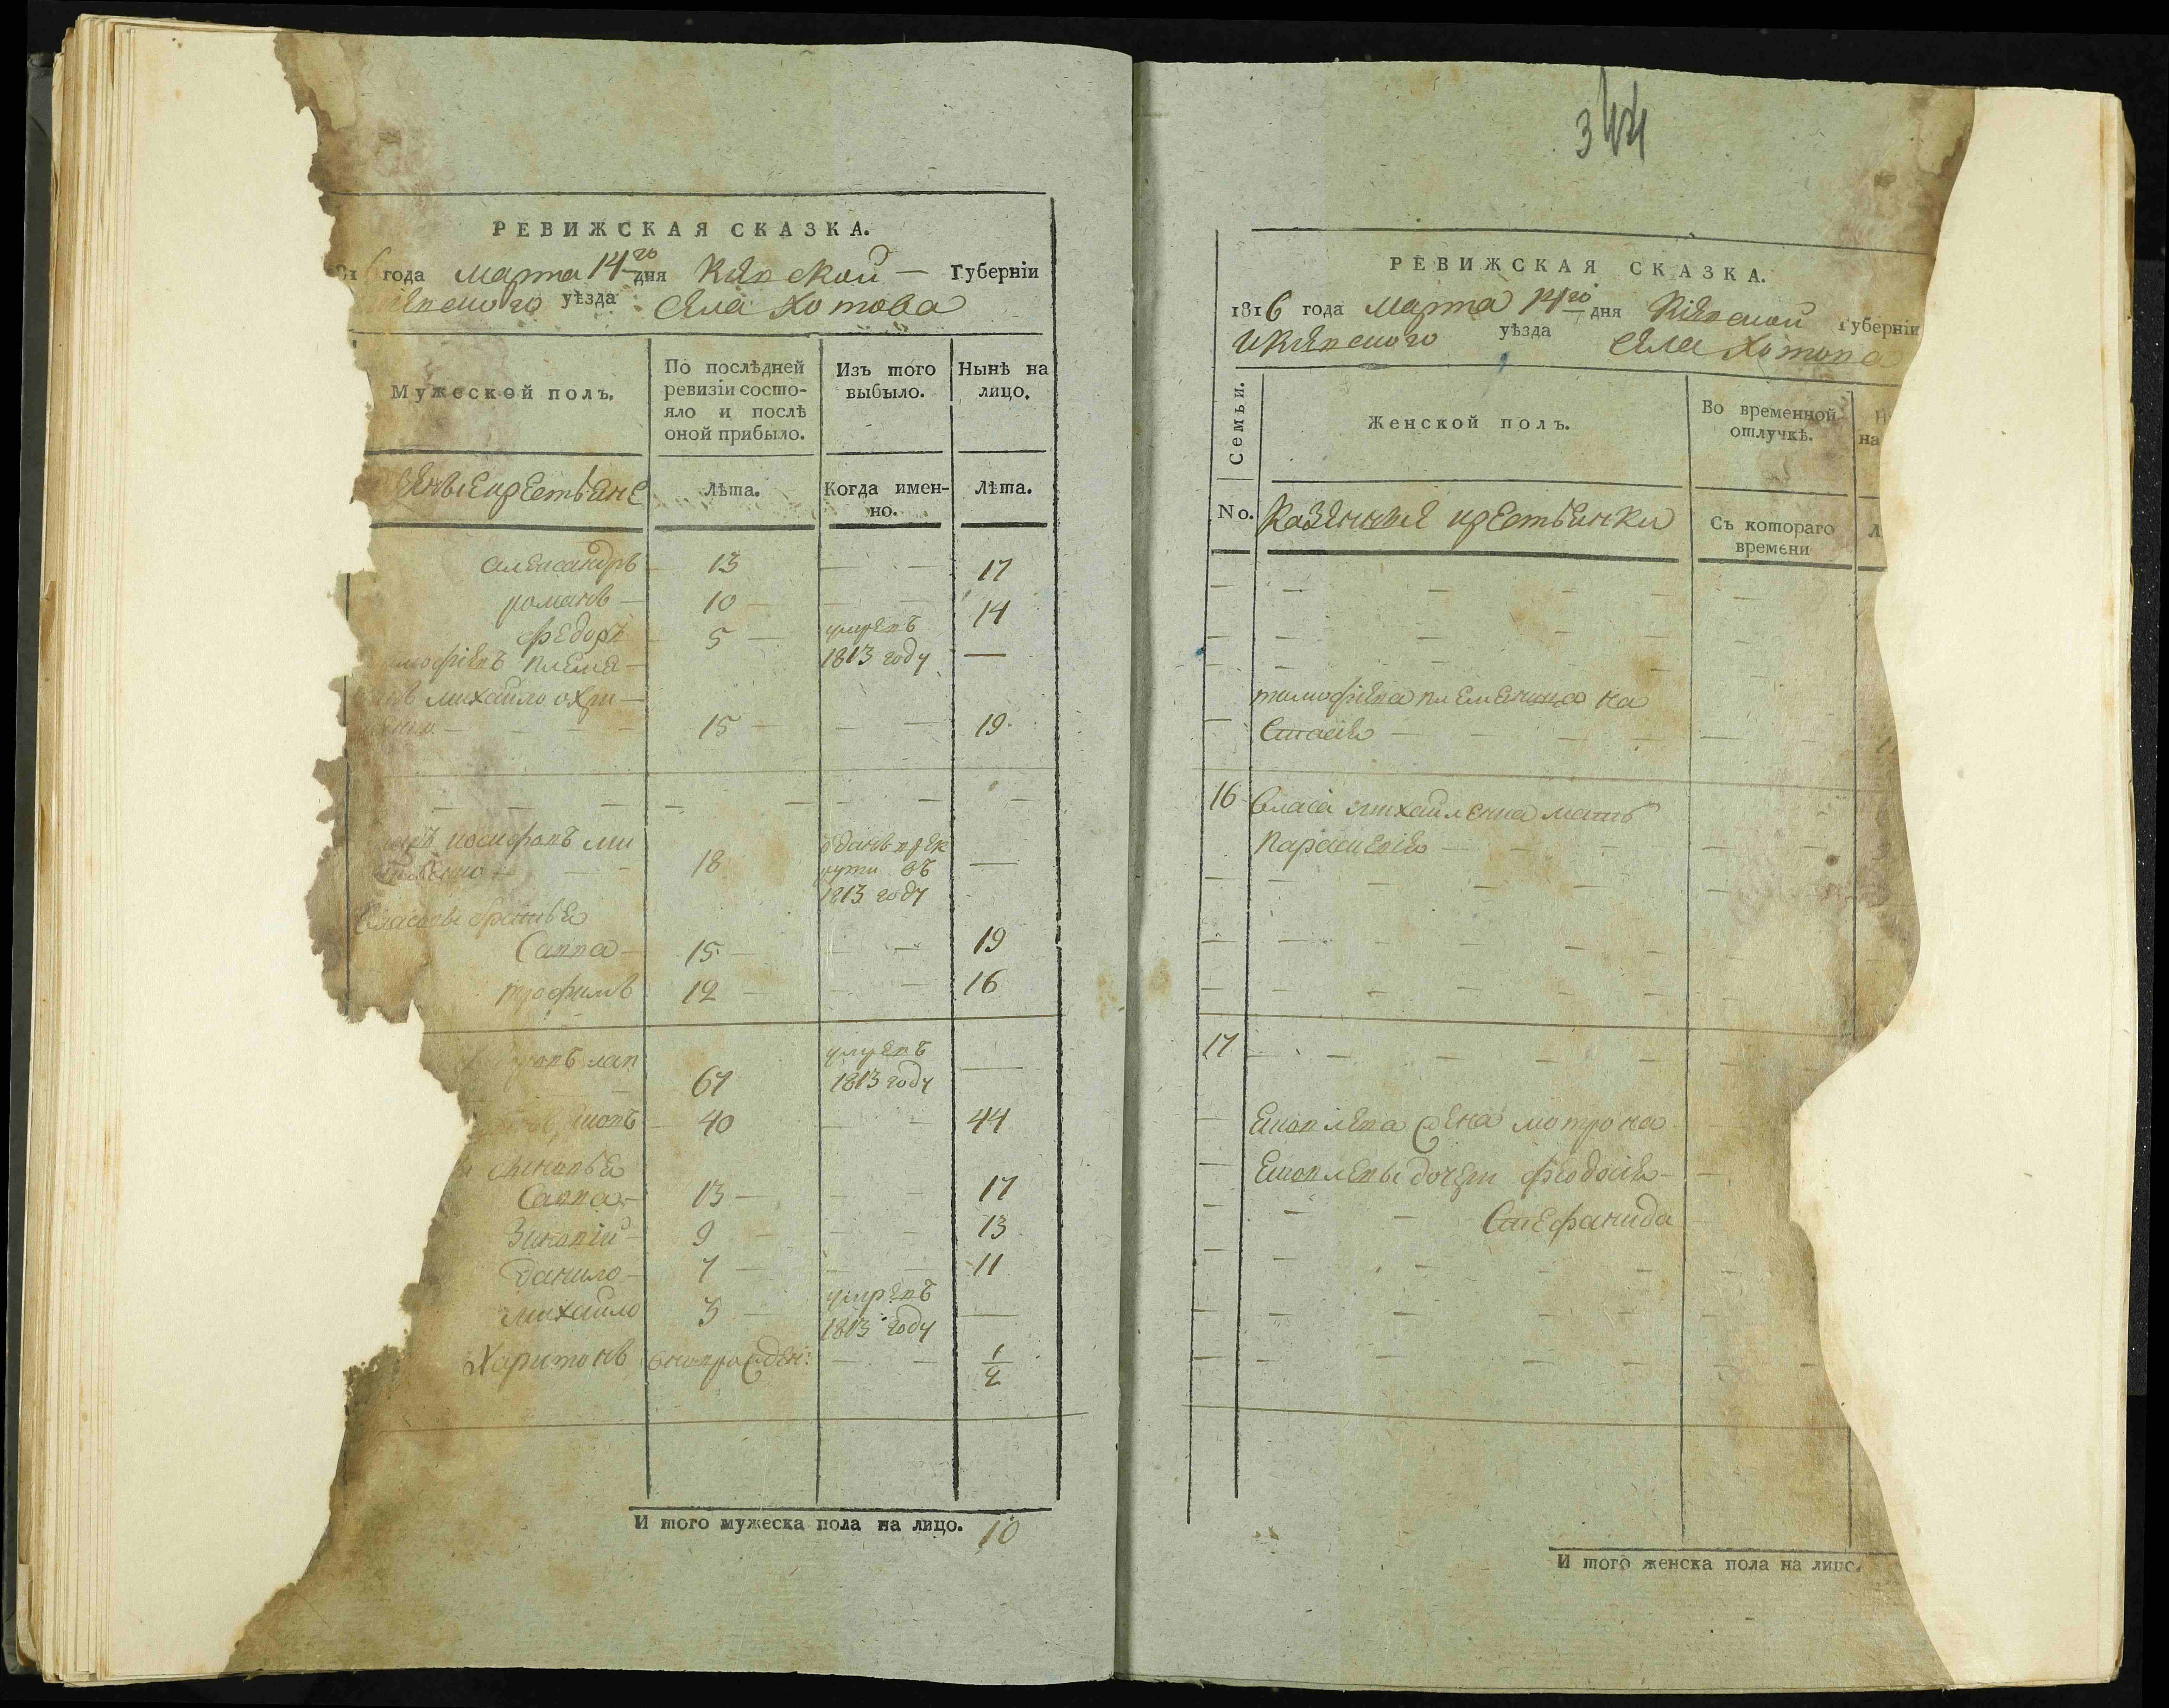 РЕВИЖСКАЯ СКАЗКА.
года марта 14го дня Киевской Губерніи
уѣзда Села Хотова
Мужеской полъ.
По послѣдней ревизіи состояло и послѣ оной прибыло.
Изъ того выбыло.
Нынѣ на лицо.
крестьяне
Лѣта.
Когда именно.
Лѣта.
александръ 13 — — 17
романъ — 10 — — — 14
федоръ 5 — умревъ
племе— 1813 году —
михайло охри—
15 — — — 19
— — — — — — — —
иосифовъ ми отданъ в рек
18 рути въ —
1813 году
Власовы братья
Савва — 15 — — — 19
трофимъ 12 — — — 16
лап умревъ
67 1813 году —
40 — — 44
сыновья
Савва — 13 — — — 17
Зиновій — 9 — — — 13
Данило — 7 — — — 11
михайло 3 — умревъ —
1813 году
Харитонъ — — 1/2
И того мужеска пола на лицо. 10
344
РЕВИЖСКАЯ СКАЗКА.
1816 года марта 14го дня Кіевской Губерніи
Кіевского уѣзда села Хотова
Семьи.
Женской полъ.
Во временной отлучкѣ.
на
No.
Казенные крестьянки
Съ котораго времени
Л
тимофіева племенница на
стасія — — — —
16 власа михайленка мать
Параскевія — — — —
17 — — — — —
жена мотрона
дочери феодосія —
— — Стефанида
И того женска пола на лицо.